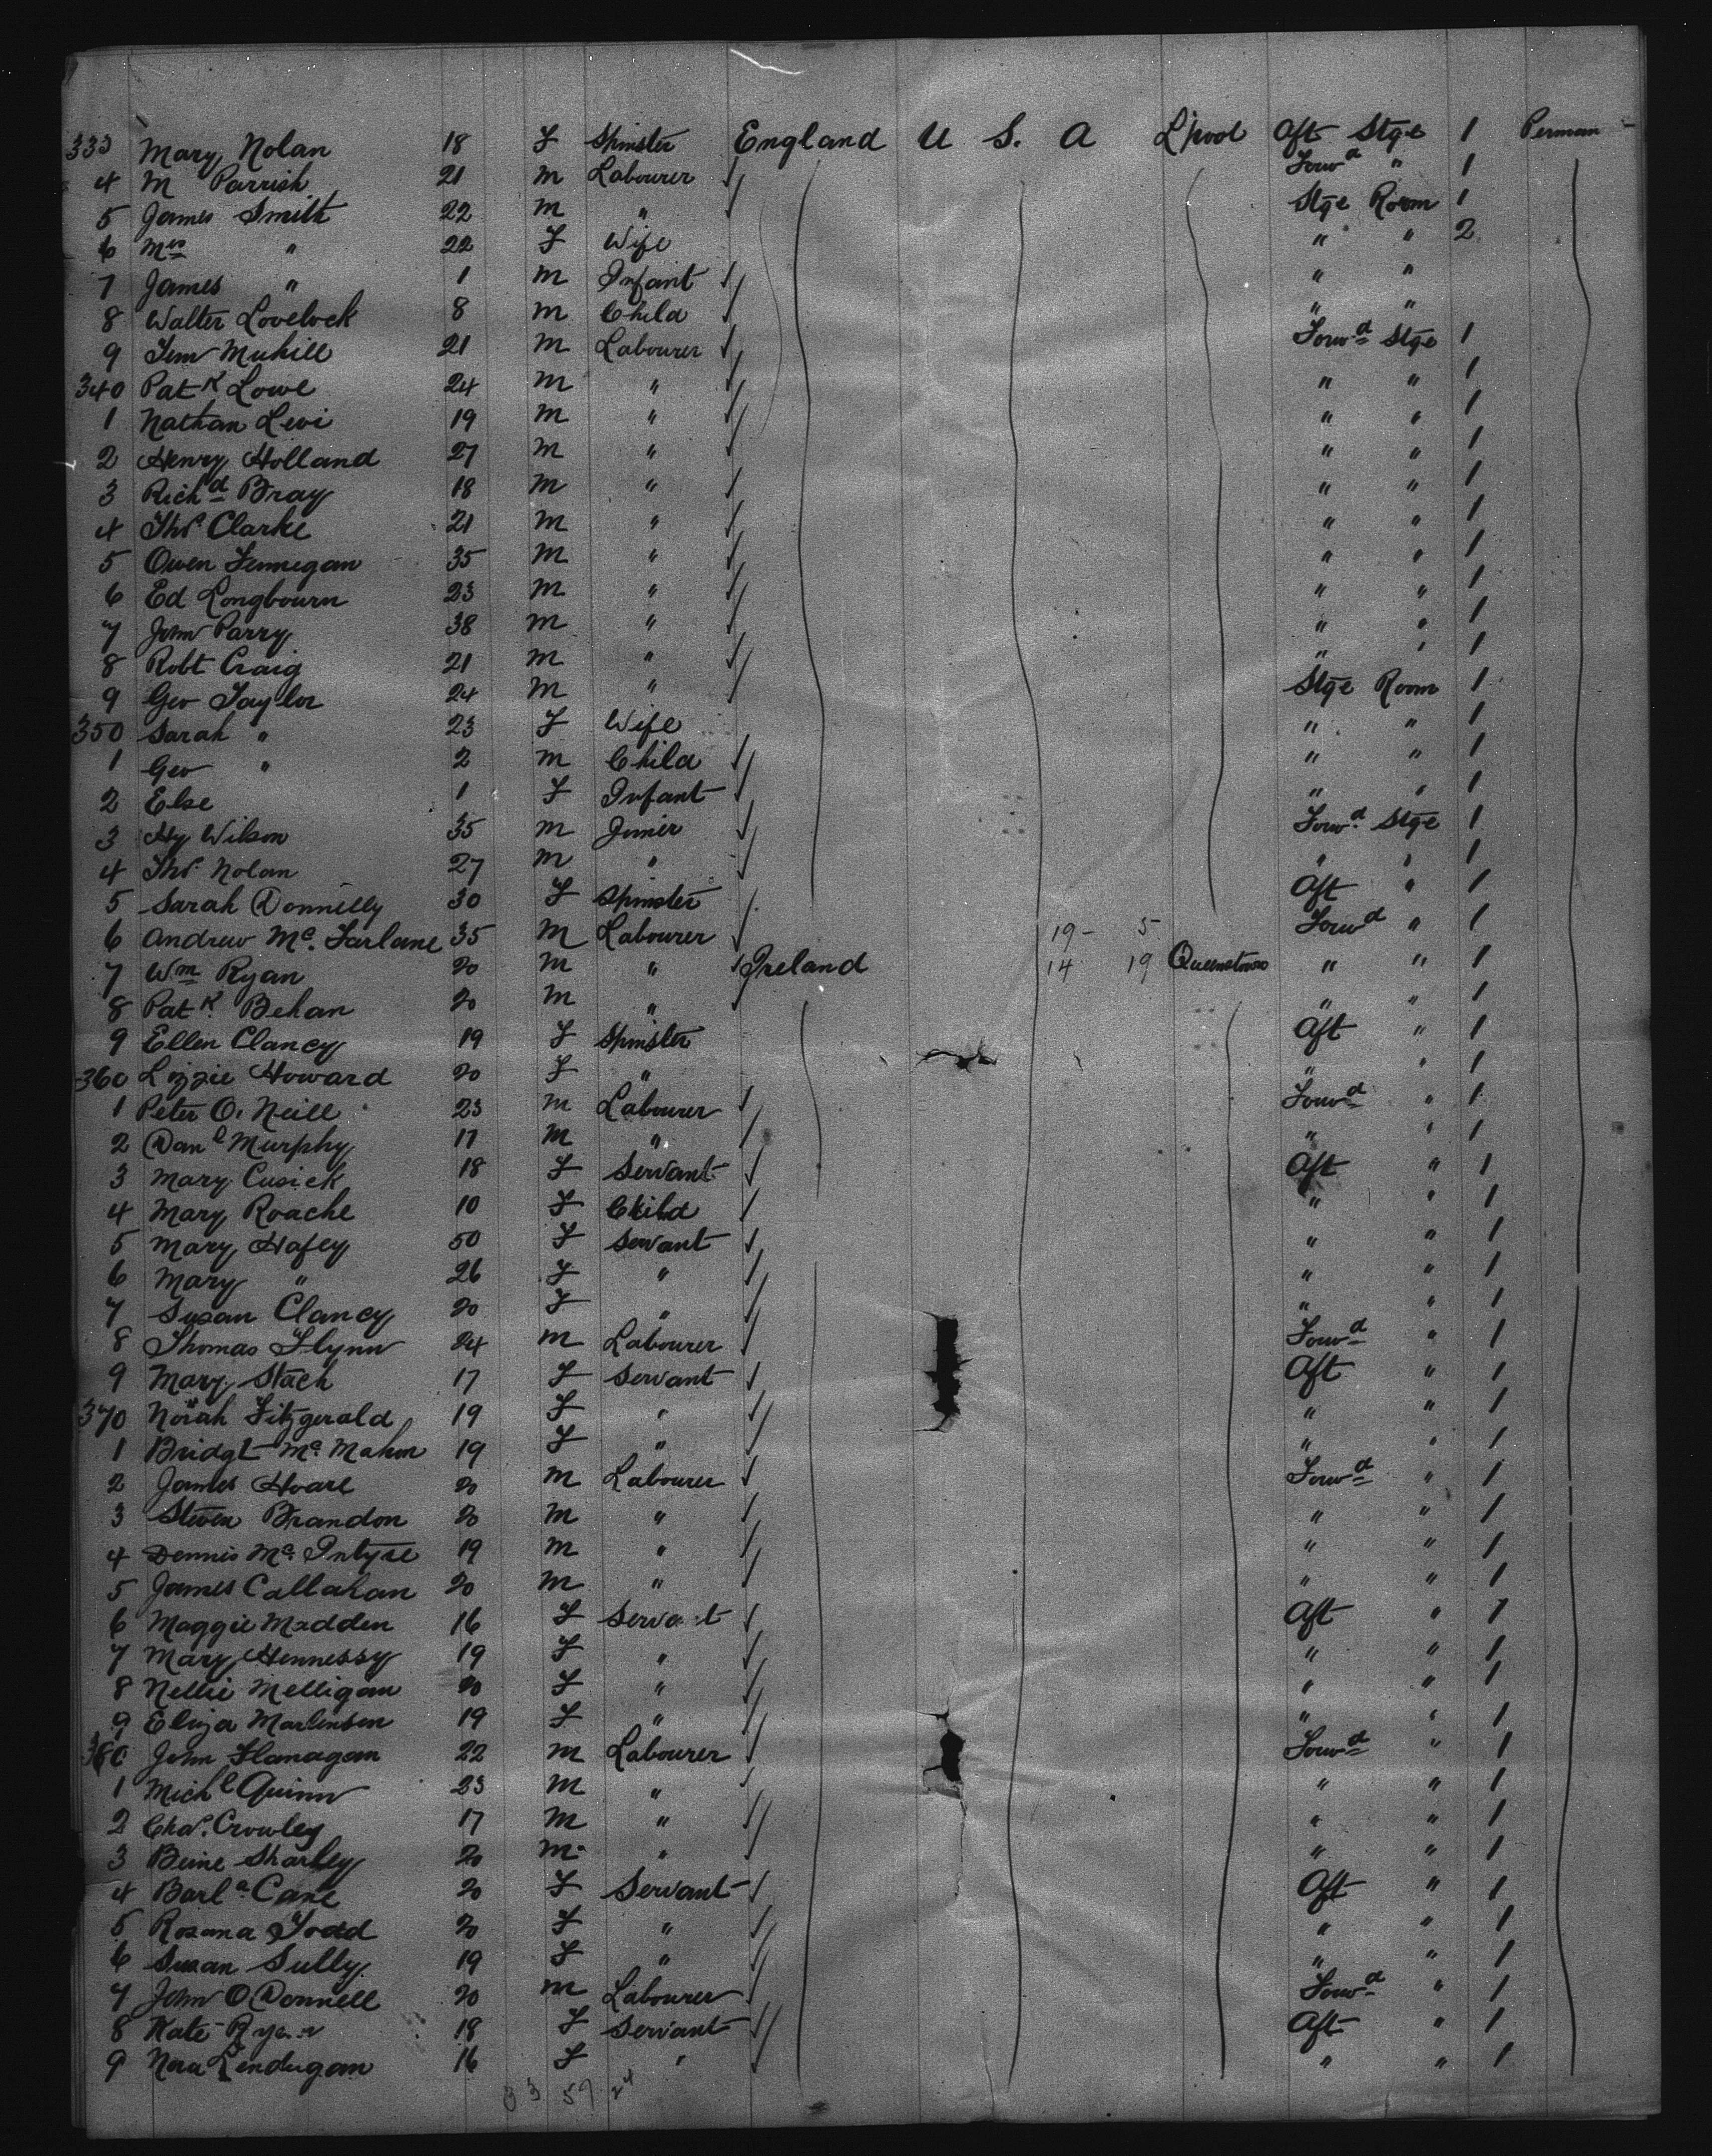 333 Mary Nolan 18 F Spinster England U S. A L'pool Aft Stge 1 Perman
4 M Parrish 21 m Labourer Forwd " 1
5 James Smith 22 m " Stge Room 1
6 Mrs " 22 F Wife " " 2
7 James " 1 m Infant " "
8 Walter Lovelock 8 m Child " "
9 Jim Muhill 21 m Labourer Forwd Stge 1
340 Patk Lowe 24 m " " " 1
1 Nathan Levi 19 m " " " 1
2 Henry Holland 27 m " " " 1
3 Richd Bray 18 m " " " 1
4 Thos Clarke 21 m " " " 1
5 Owen Fennegan 35 m " " " 1
6 Ed Longbourn 23 m " " " 1
7 John Parry 38 m " " " 1
8 Robt Craig 21 m " " " 1
9 Geo Taylor 24 m " Stge Room 1
350 Sarah " 23 F Wife " " 1
1 Geo " 2 m Child " " 1
2 Else 1 F Infant " " 1
3 Hy Wilson 35 m Joiner Forwd Stge 1
4 Thos Nolan 27 m " " " 1
5 Sarah Donnelly 30 F Spinster Aft " 1
6 Andrew Mc. Farlane 35 m Labourer 19- 5 Forwd " 1
7 Wm Ryan 20 m " Ireland 14 19 Queenstown " " 1
8 Patk. Behan 20 m " " " 1
9 Ellen Clancy 19 F Spinster Aft " 1
360 Lizzie Howard 20 F " " " 1
1 Peter O. Neill 23 m Labourer Forwd " 1
2 Danl Murphy 17 m " " " 1
3 Mary Cusick 18 F Servant Aft " 1
4 Mary Roache 10 F Child " " 1
5 Mary Hafey 50 F Servant " " 1
6 Mary " 26 F " " " 1
7 Susan Clancy 20 F " " " 1
8 Thomas Flynn 24 m Labourer Forwd " 1
9 Mary Stack 17 F Servant Aft " 1
370 Norah Fitzgerald 19 F " " " 1
1 Bridgt Mc. Mahon 19 F " " " 1
2 James Hoare 20 m Labourer Forwd " 1
3 Steven Brandon 20 m " " " 1
4 Dennis Mc. Intyre 19 m " " " 1
5 James Callahan 20 m " " " 1
6 Maggie Madden 16 F Servant Aft " 1
7 Mary Hennessy 19 F " " " 1
8 Nellie Melligan 20 F " " " 1
9 Eliza 19 F " " " 1
380 John Flanagan 22 m Labourer Forwd " 1
1 Michl Quinn 23 m " " " 1
2 Chas. Crowley 17 m " " " 1
3 Sharkey 20 m " " " 1
4 Cane 20 F Servant Aft " 1
5 Rosana Todd 20 F " " " 1
6 Susan Sully 19 F " " " 1
7 John O Donnell 20 m Labourer Forwd " 1
8 Kate Ryan 18 F Servant Aft " 1
9 Nora Lendugan 16 F " " " 1
33 59 24